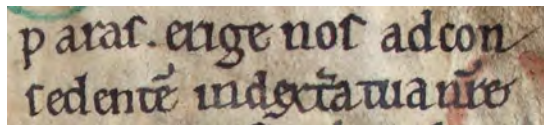 paras. erige nos adcon
sedentē indext̄a tua nr̄e